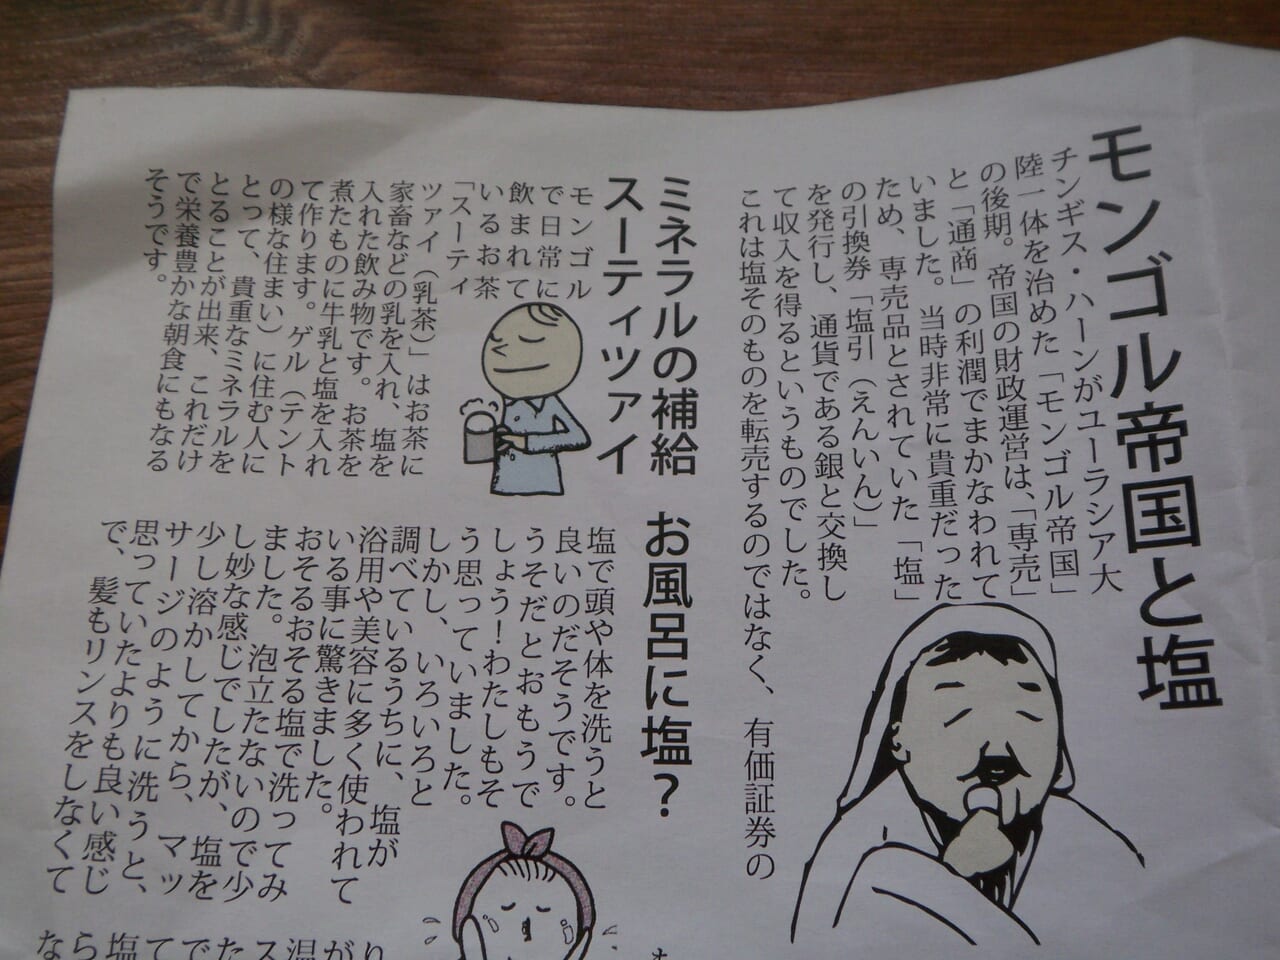 モンゴル帝国と塩
チンギス・ハーンがユーラシア大
陸一体を治めた「モンゴル帝国」
の後期。帝国の財政運営は、「専売」
と「通商」の利潤でまかなわれて
いました。当時非常に貴重だった
ため、専売品とされていた「塩」
の引換券「塩引（えんいん）」
を発行し、通貨である銀と交換し
て収入を得るというものでした。
これは塩そのものを転売するのではなく、有価証券の
ミネラルの補給
スーティツァイ
モンゴル
で日常に
飲まれて
いるお茶
「スーティ
ツァイ（乳茶）」はお茶に
家畜などの乳を入れ、塩を
入れた飲み物です。お茶を
煮たものに牛乳と塩を入れ
て作ります。ゲル（テント
の様な住まい）に住む人に
とって、貴重なミネラルを
とることが出来、これだけ
で栄養豊かな朝食にもなる
そうです。
お風呂に塩？
塩で頭や体を洗うと
良いのだそうです。
うそだとおもうで
しょう！わたしもそ
う思っていました。
しかし、いろいろと
調べているうちに、塩が
浴用や美容に多く使われて
いる事に驚きました。
おそるおそる塩で洗ってみ
ました。泡立たないので少
し妙な感じでしたが、塩を
少し溶かしてから、マッ
サージのように洗うと、
思っていたよりも良い感じ
で、髪もリンスをしなくて